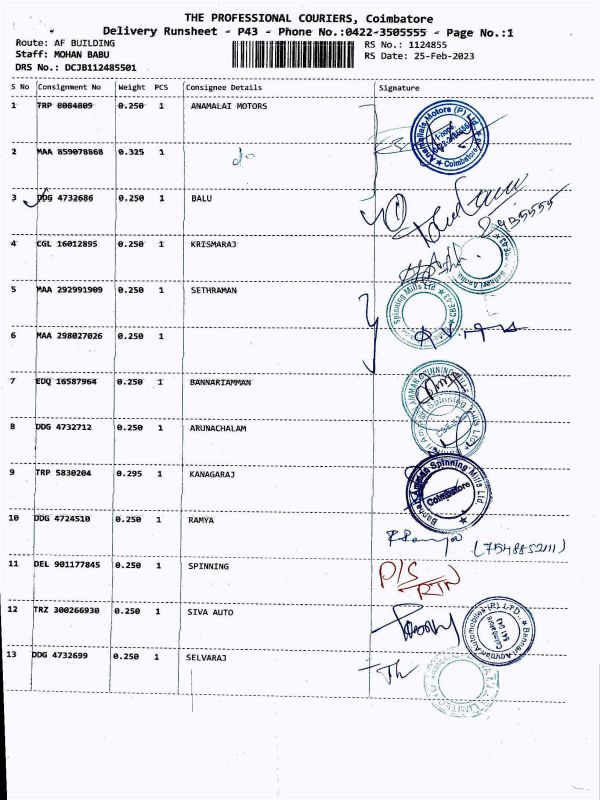 THE PROFESSIONAL COURIERS, Coimbatore
Delivery Runsheet - P43 - Phone No.:0422-3505555 - Page No.:1
Route: AF BUILDING RS No.: 1124855
Staff: MOHAN BABU RS Date: 25-Feb-2023
DRS No.: DCJB112485501
S No Consignment No Weight PCS Consignee Details Signature
1 TRP 8084809 0.250 1 ANAMALAI MOTORS
2 MAA 859078868 0.325 1 do
3 DDG 4732686 0.250 1 BALU
4 CGL 16012895 0.250 1 KRISMARAJ
5 MAA 292991909 0.250 1 SETHRAMAN
6 MAA 298027026 0.250 1
7 EDQ 16587964 0.250 1 BANNARIAMMAN
8 DDG 4732712 0.250 1 ARUNACHALAM
9 TRP 5830204 0.295 1 KANAGARAJ
Bannari Amman Spinning Mills Ltd
Coimbatore
10 DDG 4724510 0.250 1 RAMYA
11 DEL 901177845 0.250 1 SPINNING P/S RTN
12 TRZ 300266930 0.250 1 SIVA AUTO
13 DDG 4732699 0.250 1 SELVARAJ